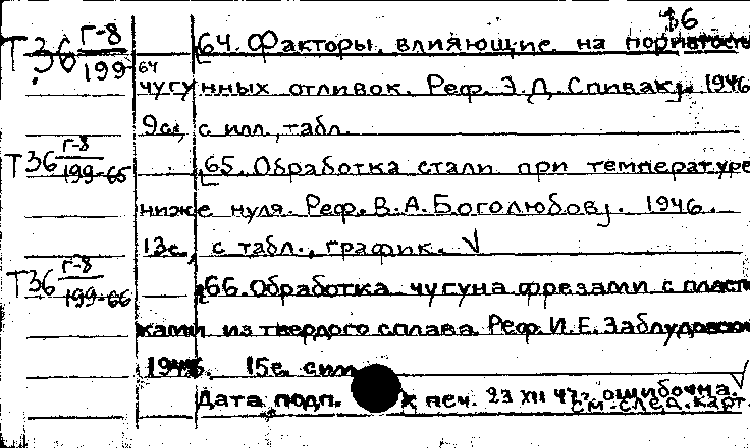 36
Т36 Г-8/199-64 64. Факторы, влияющие на пористость
чугунных отливок. Реф. Э.Д. Спивак]. 1946
9с., с илл., табл.
Т36 Г-8/199-65 65. Обработка стали при температуре
ниже нуля. Реф. В.А. Боголюбов]. 1946.
13с., с табл., график. V
Т36 Г-8/199-66 66. Обработка чугуна фрезами с пласти
ками из твердого сплава. Реф. И.Е. Заблудовский
1946. 15с. с илл.
Дата подп. к печ. 23 XII 47г. ошибочна. V
см. след. карт.